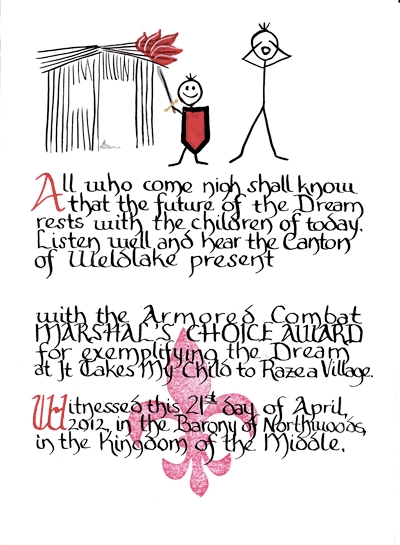 All who come nigh shall know
that the future of the Dream
rests with the children of today.
Listen well and hear the Canton
of Weldlake present
with the Armored Combat
MARSHAL'S CHOICE AWARD
for exemplifying the Dream
at It Takes My Child to Raze a Village.
Witnessed this 21st day of April,
2012, in the Barony of Northwoods,
in the Kingdom of the Middle.